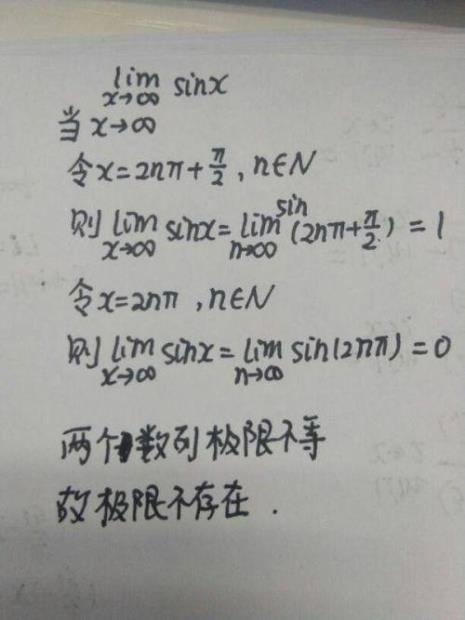 lim sinx
x→∞
当 x→∞
令x=2nπ+π/2, n∈N
则 lim sinx= lim sin (2nπ+π/2) = 1
x→∞ n→∞
令x=2nπ , n∈N
则 lim sinx= lim sin(2nπ) = 0
x→∞ n→∞
两个数列极限不等
故极限不存在 .